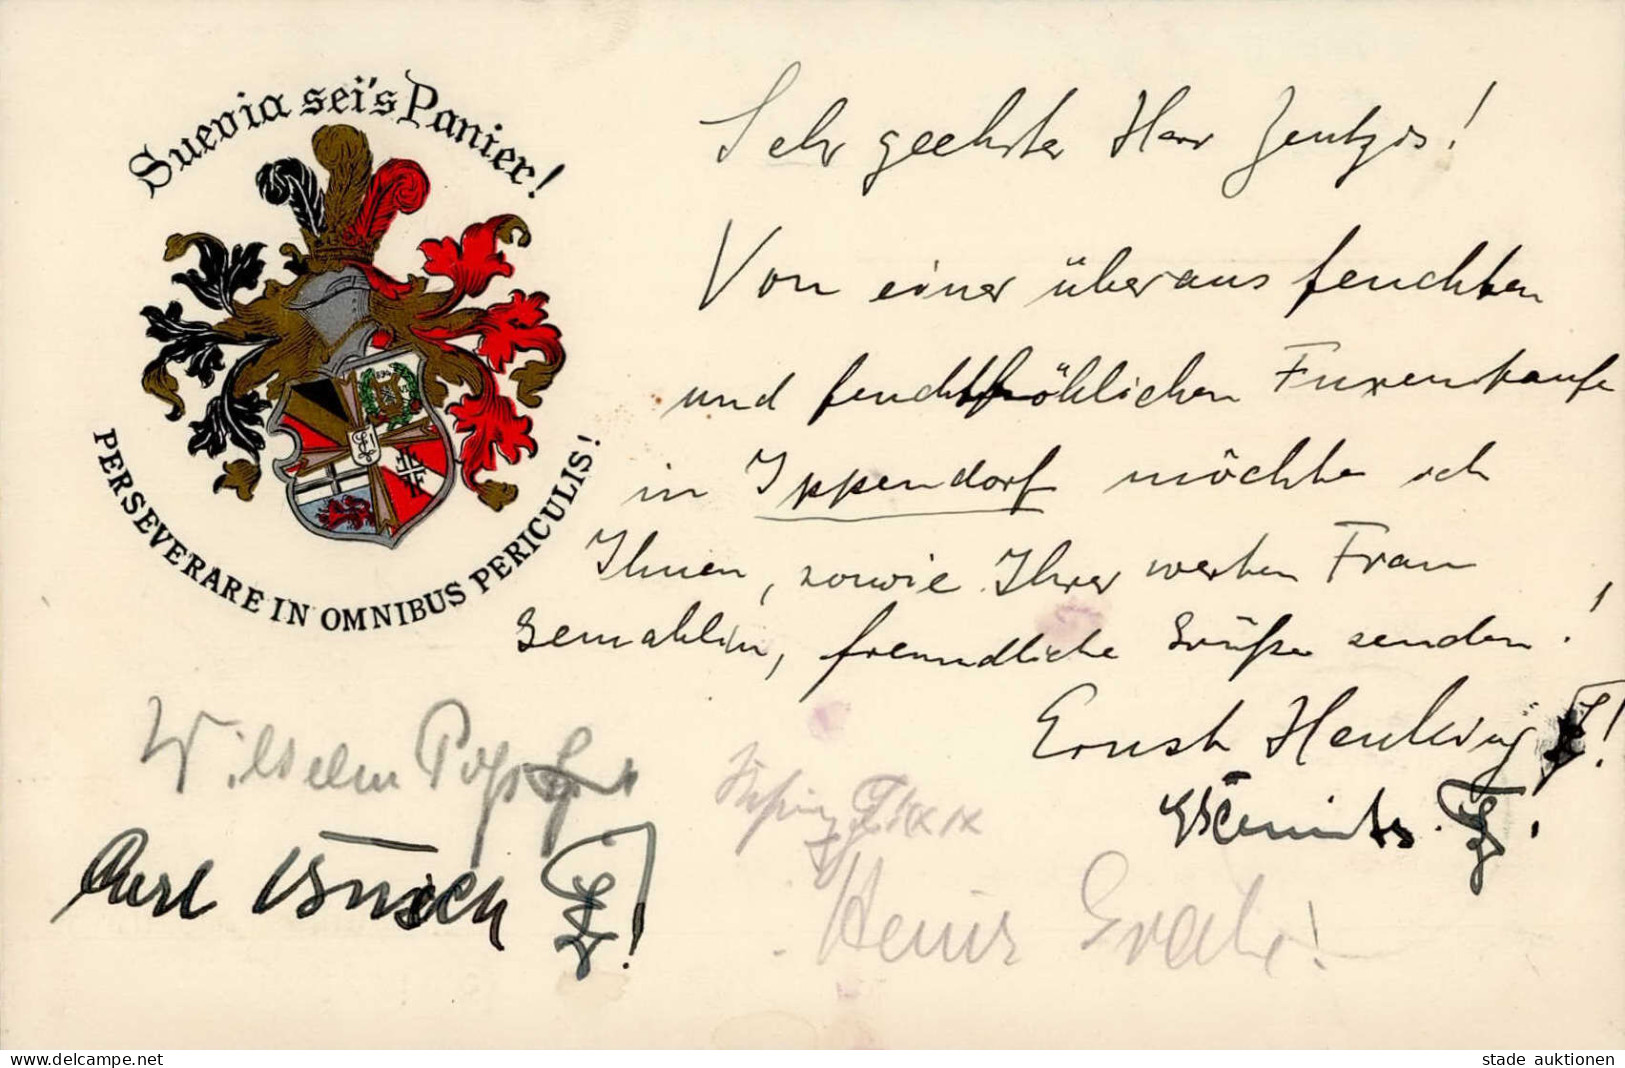 Suevia sei's Panier!
PERSEVERARE IN OMNIBUS PERICULIS!
Sehr geehrter Herr
Von einer überaus feuchten
und feuchtfröhlichen Fuxenkaufe
in Ippendorf möchte ich
Ihnen, sowie Ihrer werten Frau
Gemahlin, freundliche Grüße senden!
Ernst
Wilhelm
Carl Busch
Heinz
www.delcampe.net
stade auktionen